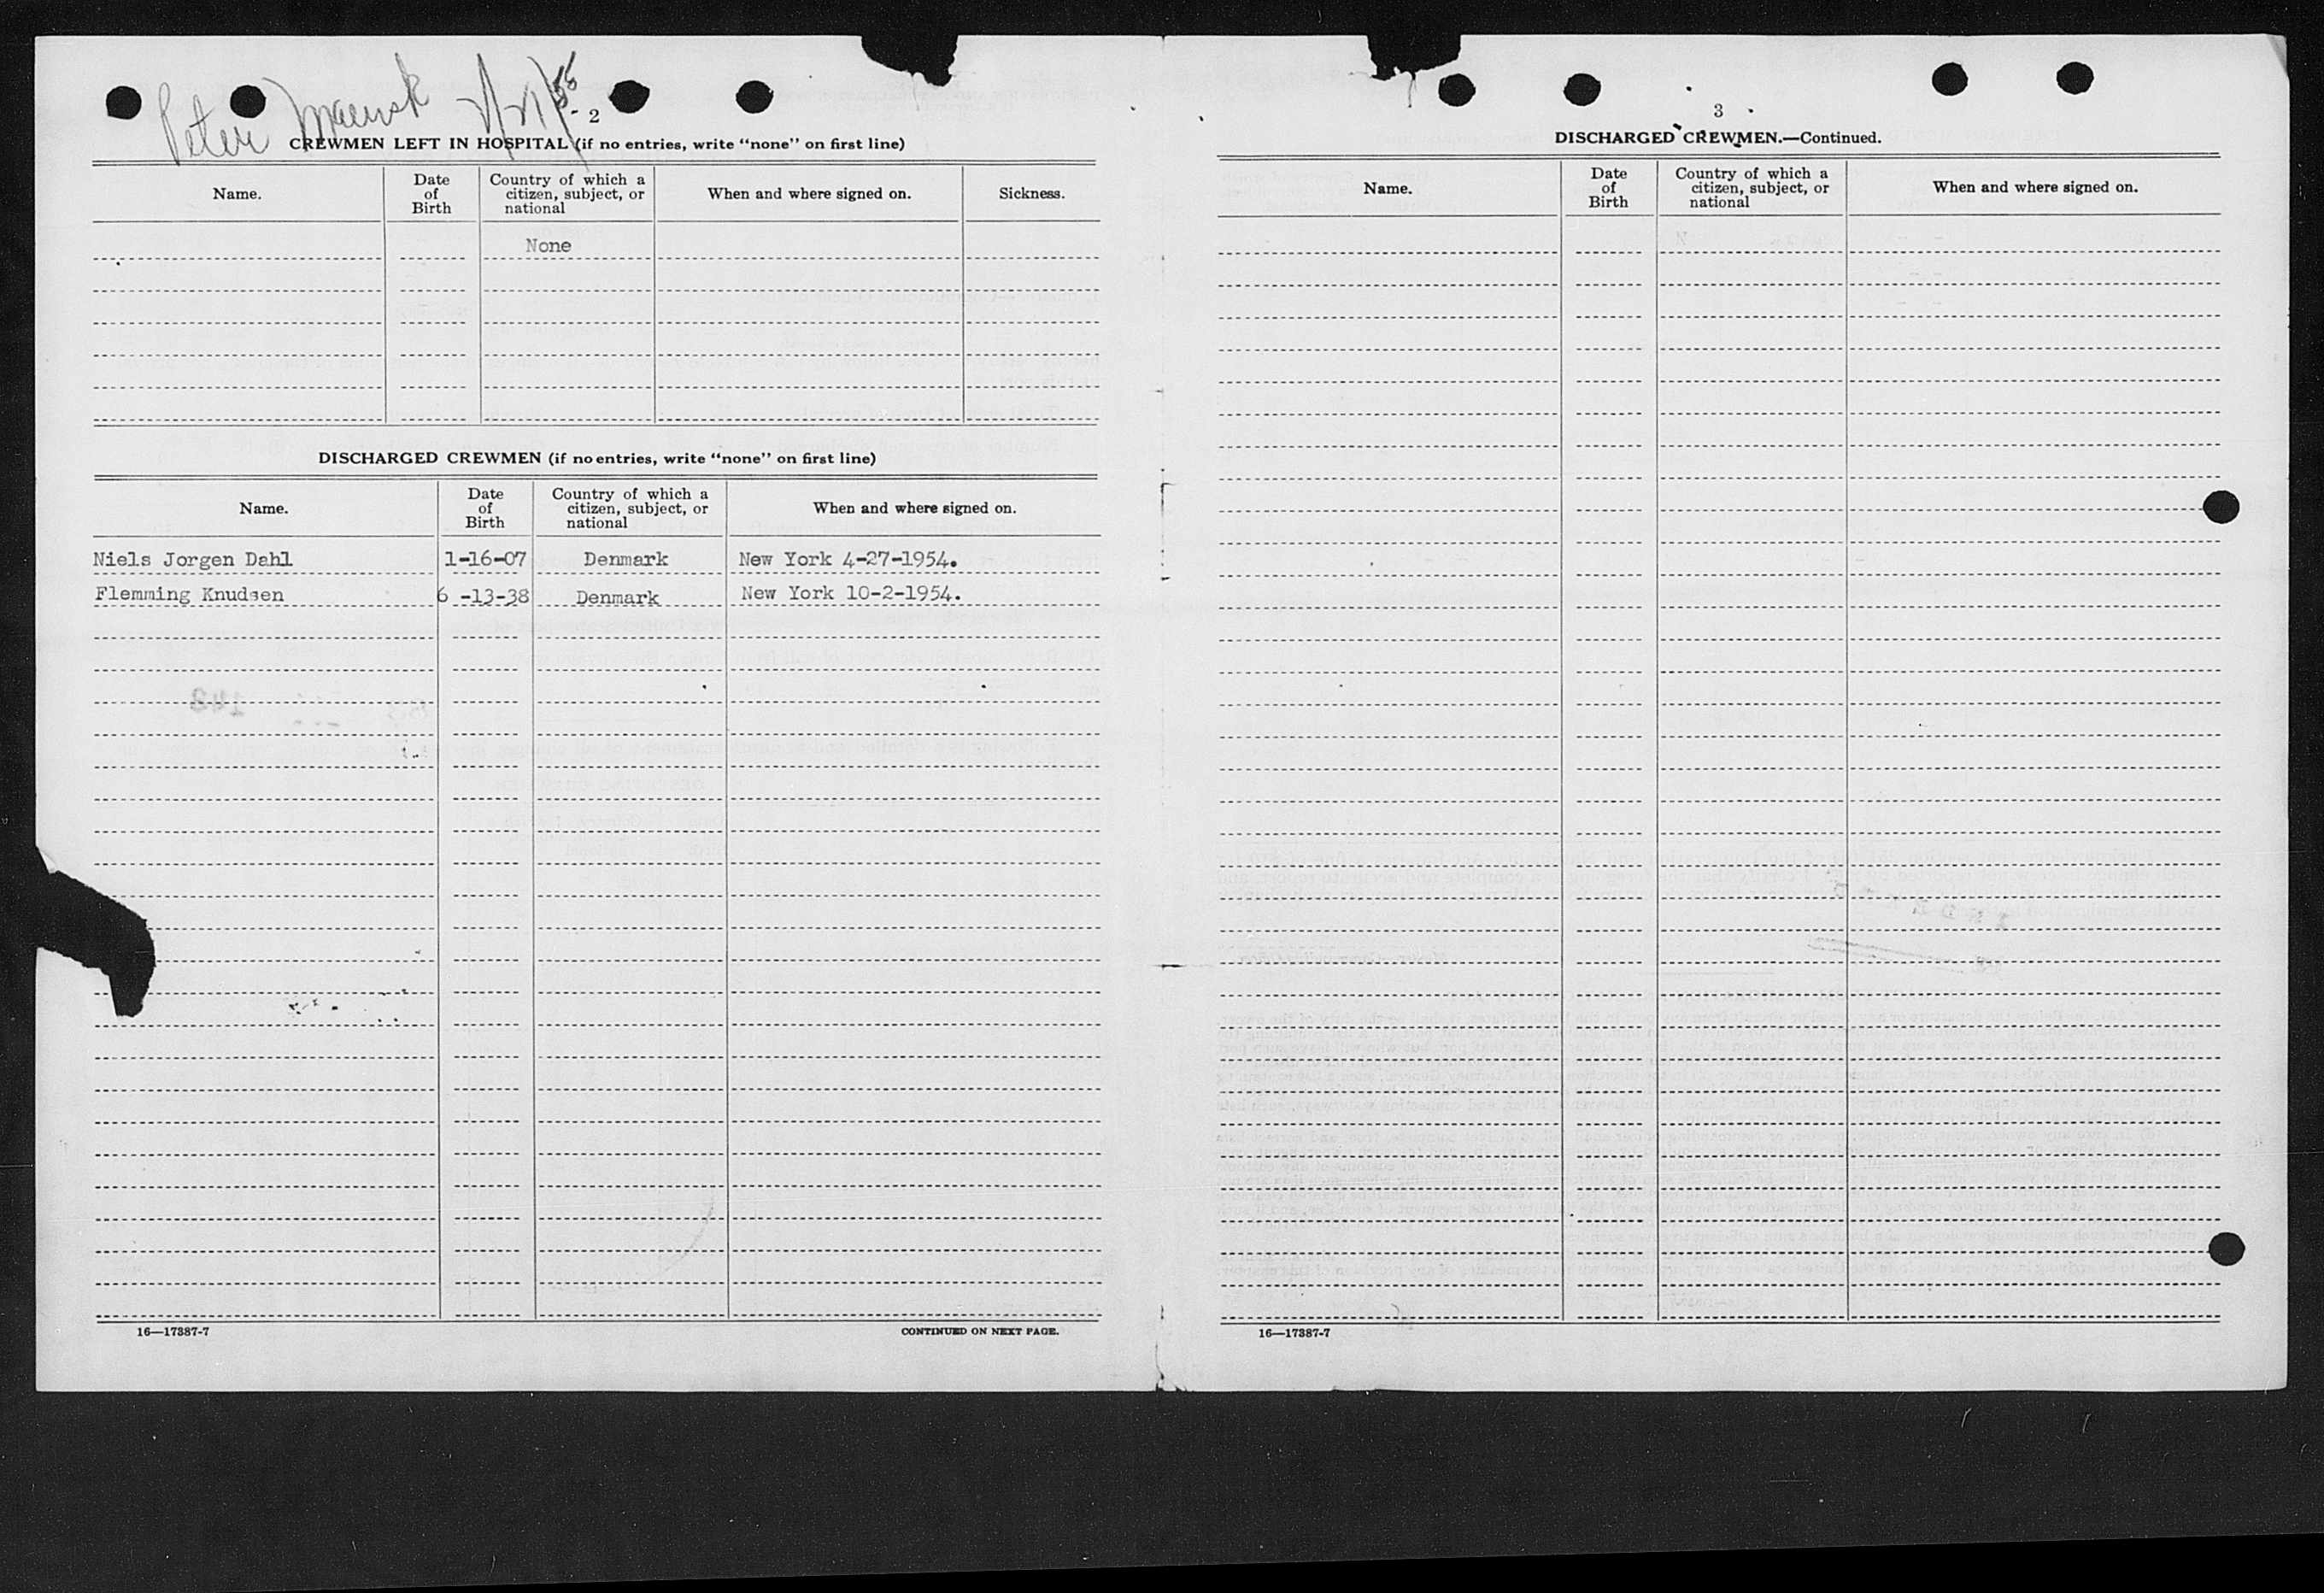 Peter Maersk
- 2
CREWMEN LEFT IN HOSPITAL (if no entries, write “none” on first line)
Name. Date of Birth Country of which a citizen, subject, or national When and where signed on. Sickness.
None
DISCHARGED CREWMEN (if no entries, write “none” on first line)
Name. Date of Birth Country of which a citizen, subject, or national When and where signed on.
Niels Jorgen Dahl 1-16-07 Denmark New York 4-27-1954.
Flemming Knudsen 6 -13-38 Denmark New York 10-2-1954.
16—17387-7 CONTINUED ON NEXT PAGE.
3
DISCHARGED CREWMEN.—Continued.
Name. Date of Birth Country of which a citizen, subject, or national When and where signed on.
16—17387-7